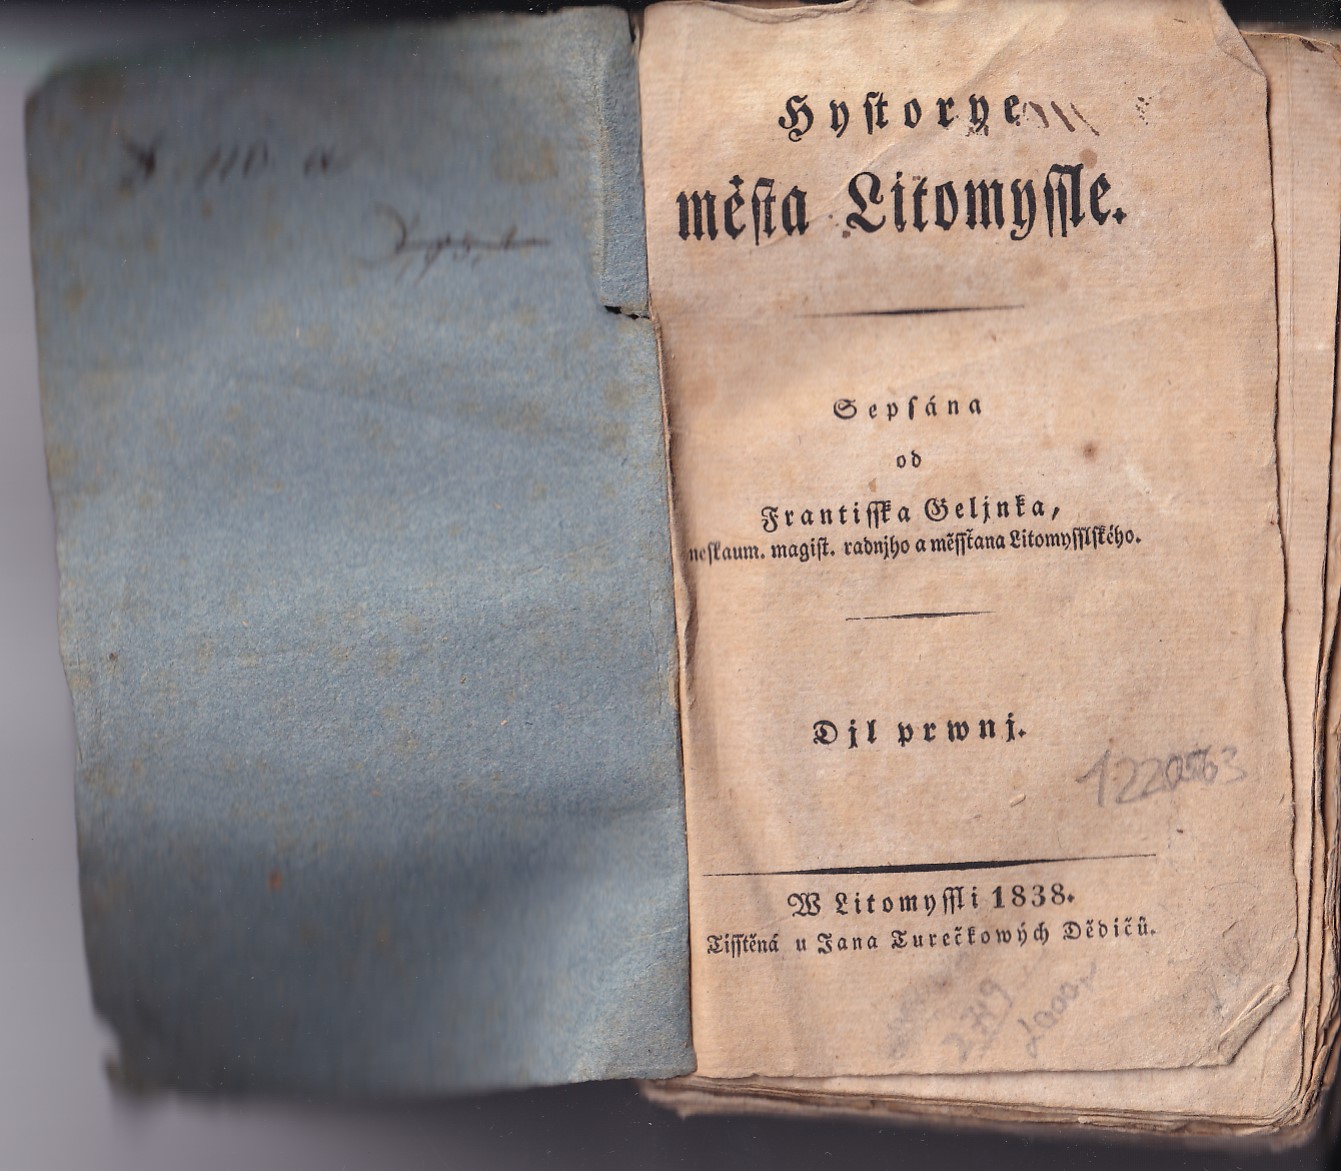 Hystorye
města Litomyssle.
Sepsána
od
Frantisska Geljnka,
neskaum. magist. radnjho a měssťana Litomysslského.
Djl prwnj.
W Litomyssli 1838.
Tisstěná u Jana Turečkowých Dědičů.